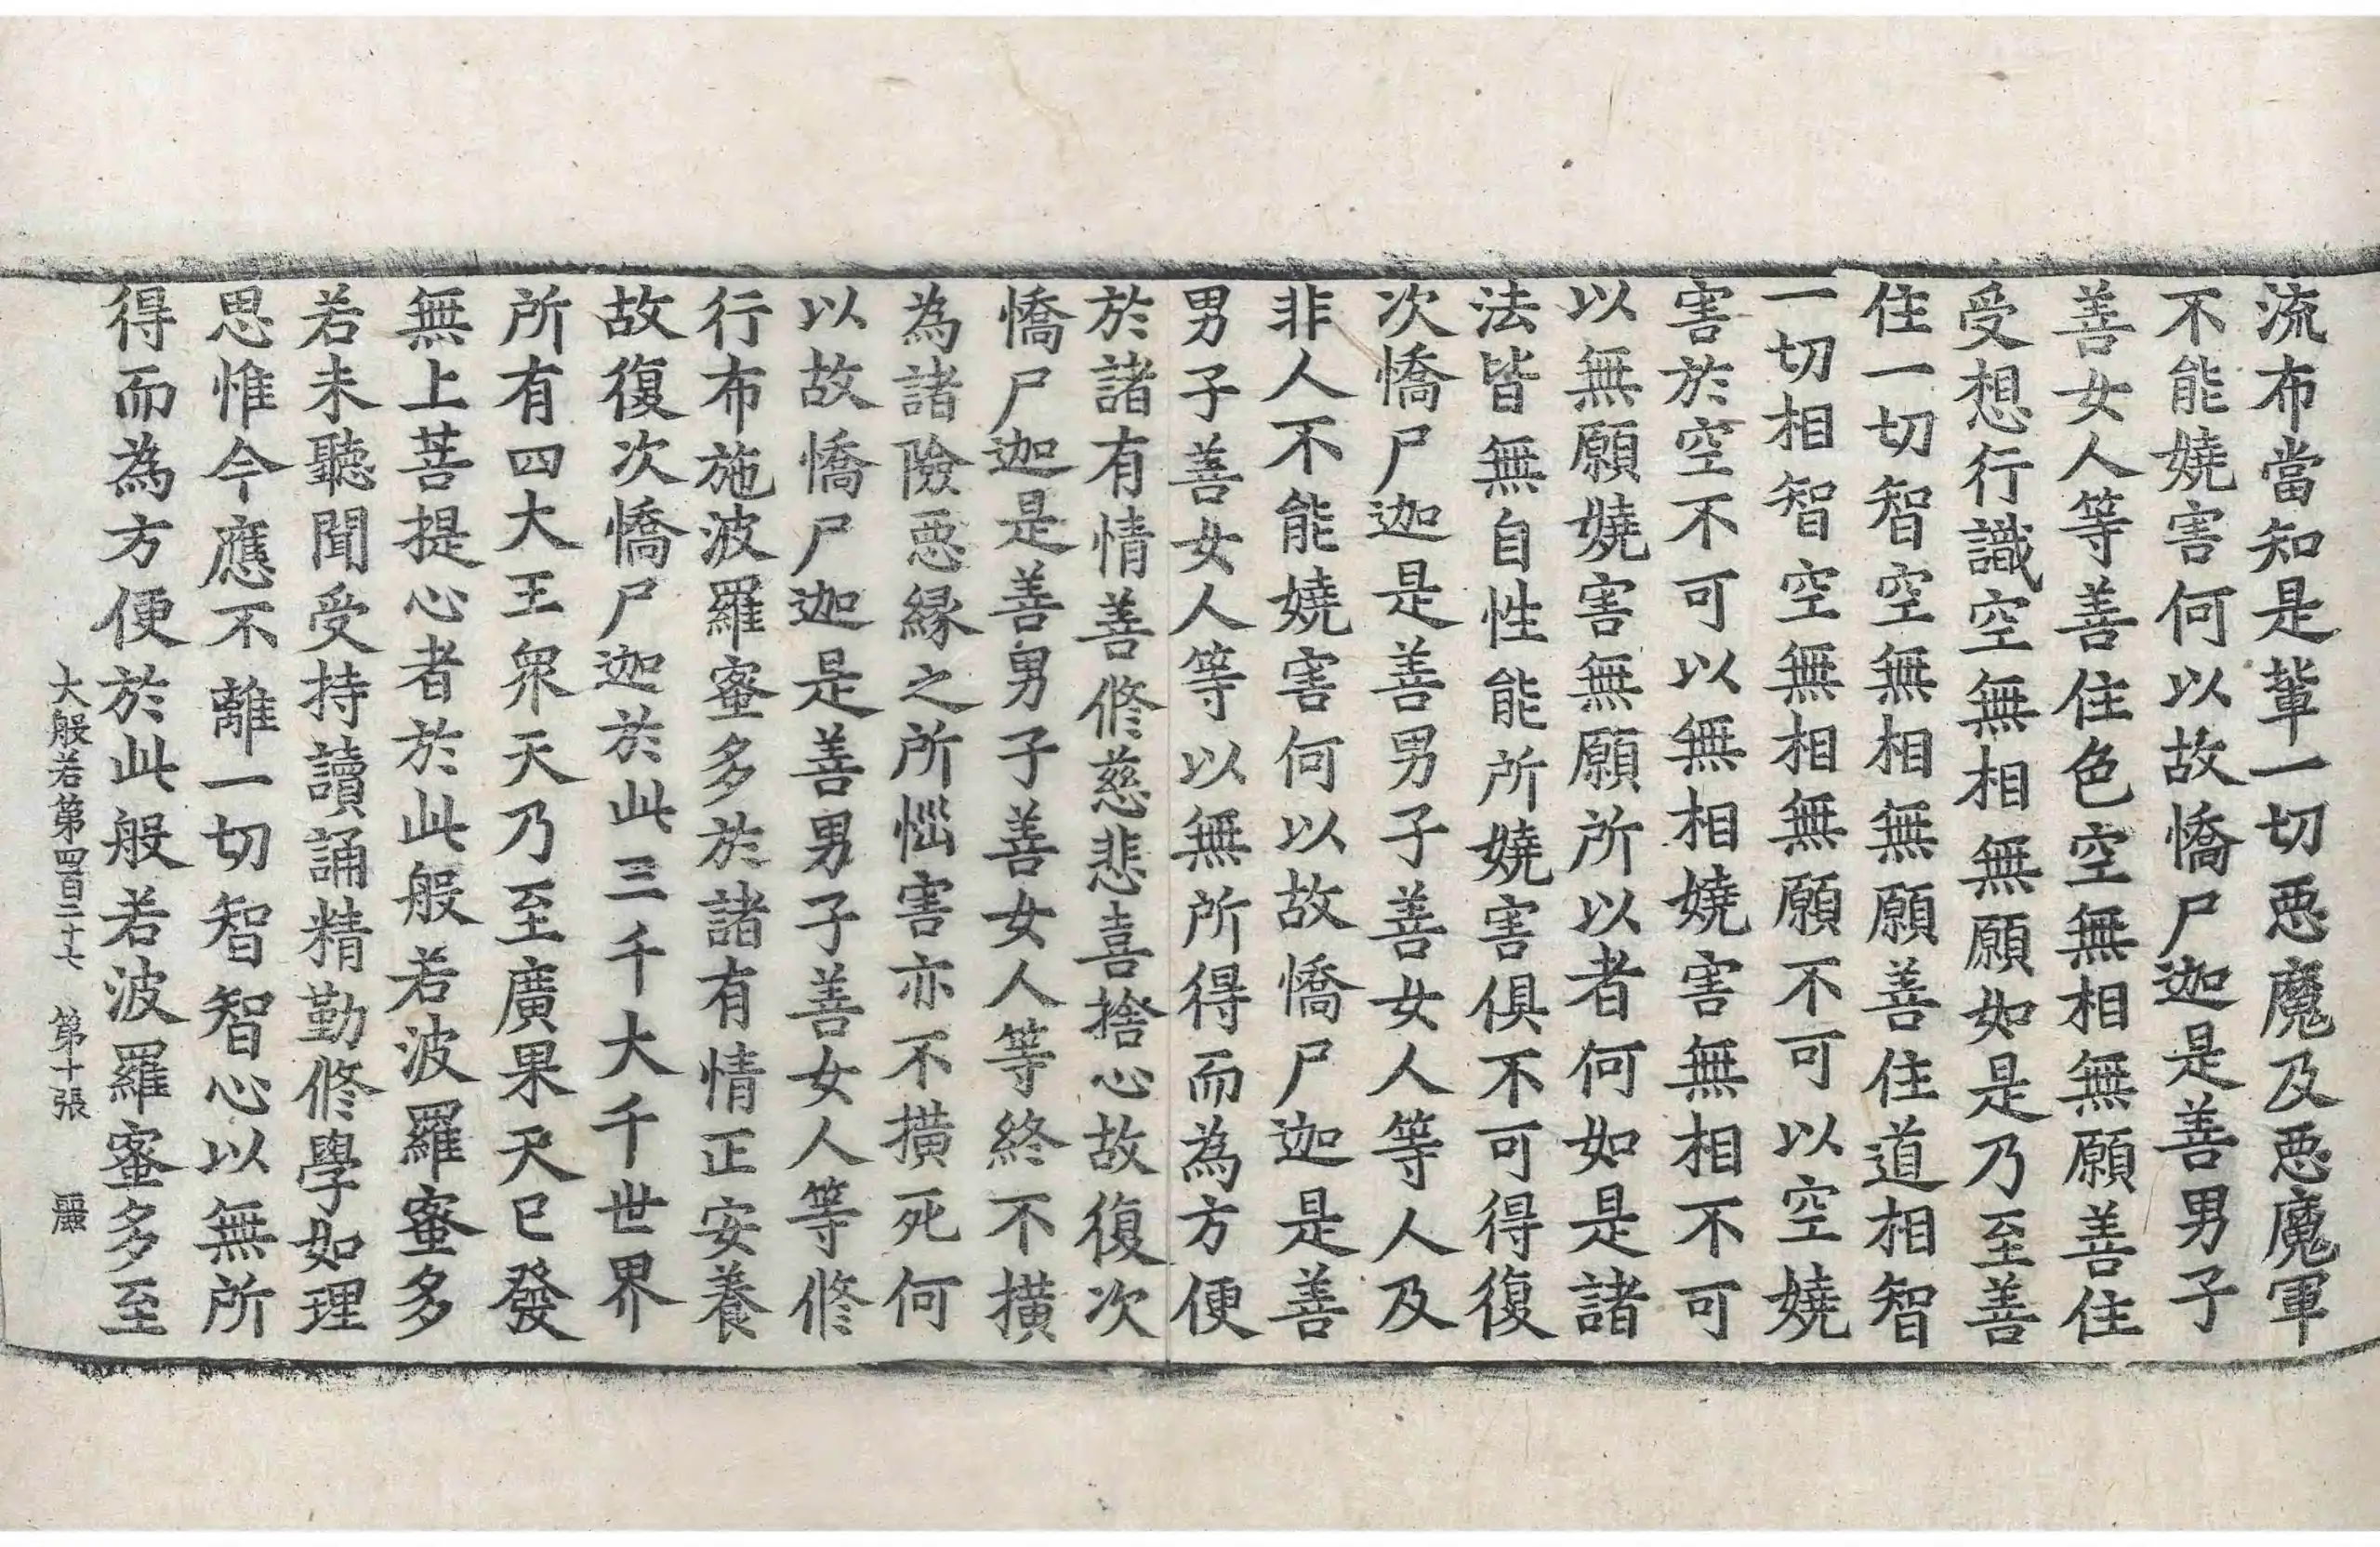 流布當知是輩一切惡魔及惡魔軍
不能嬈害何以故憍尸迦是善男子
善女人等善住色空無相無願善住
受想行識空無相無願如是乃至善
住一切智空無相無願善住道相智
一切相智空無相無願不可以空嬈
害於空不可以無相嬈害無相不可
以無願嬈害無願所以者何如是諸
法皆無自性能所嬈害俱不可得復
次憍尸迦是善男子善女人等人及
非人不能嬈害何以故憍尸迦是善
男子善女人等以無所得而為方便
於諸有情善修慈悲喜捨心故復次
憍尸迦是善男子善女人等終不橫
為諸險惡緣之所惱害亦不橫死何
以故憍尸迦是善男子善女人等修
行布施波羅蜜多於諸有情正安養
故復次憍尸迦於此三千大千世界
所有四大王眾天乃至廣果天已發
無上菩提心者於此般若波羅蜜多
若未聽聞受持讀誦精勤修學如理
思惟今應不離一切智智心以無所
得而為方便於此般若波羅蜜多至
大般若第四百二十七 第十張 麗